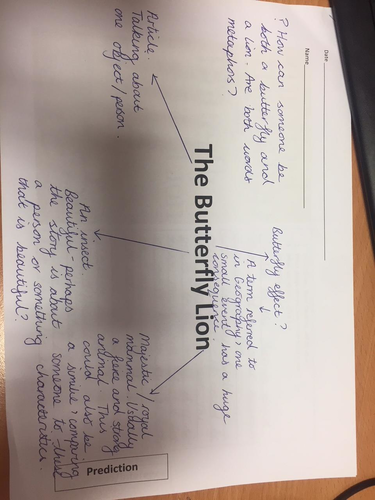 Date
Name
? How can someone be
both a butterfly and
a lion. Are both words
metaphors?
Butterfly effect?
A term referred to
in Geography; one
small event has a huge
consequence.
The Butterfly Lion
Article.
Talking about
one object/person.
An insect.
Beautiful - perhaps
the story is about
a person or something
that is beautiful?
Majestic/royal
mammal. Usually
a fierce and strong
animal. This
could also be
a simile; comparing
someone to these
characteristics.
Prediction